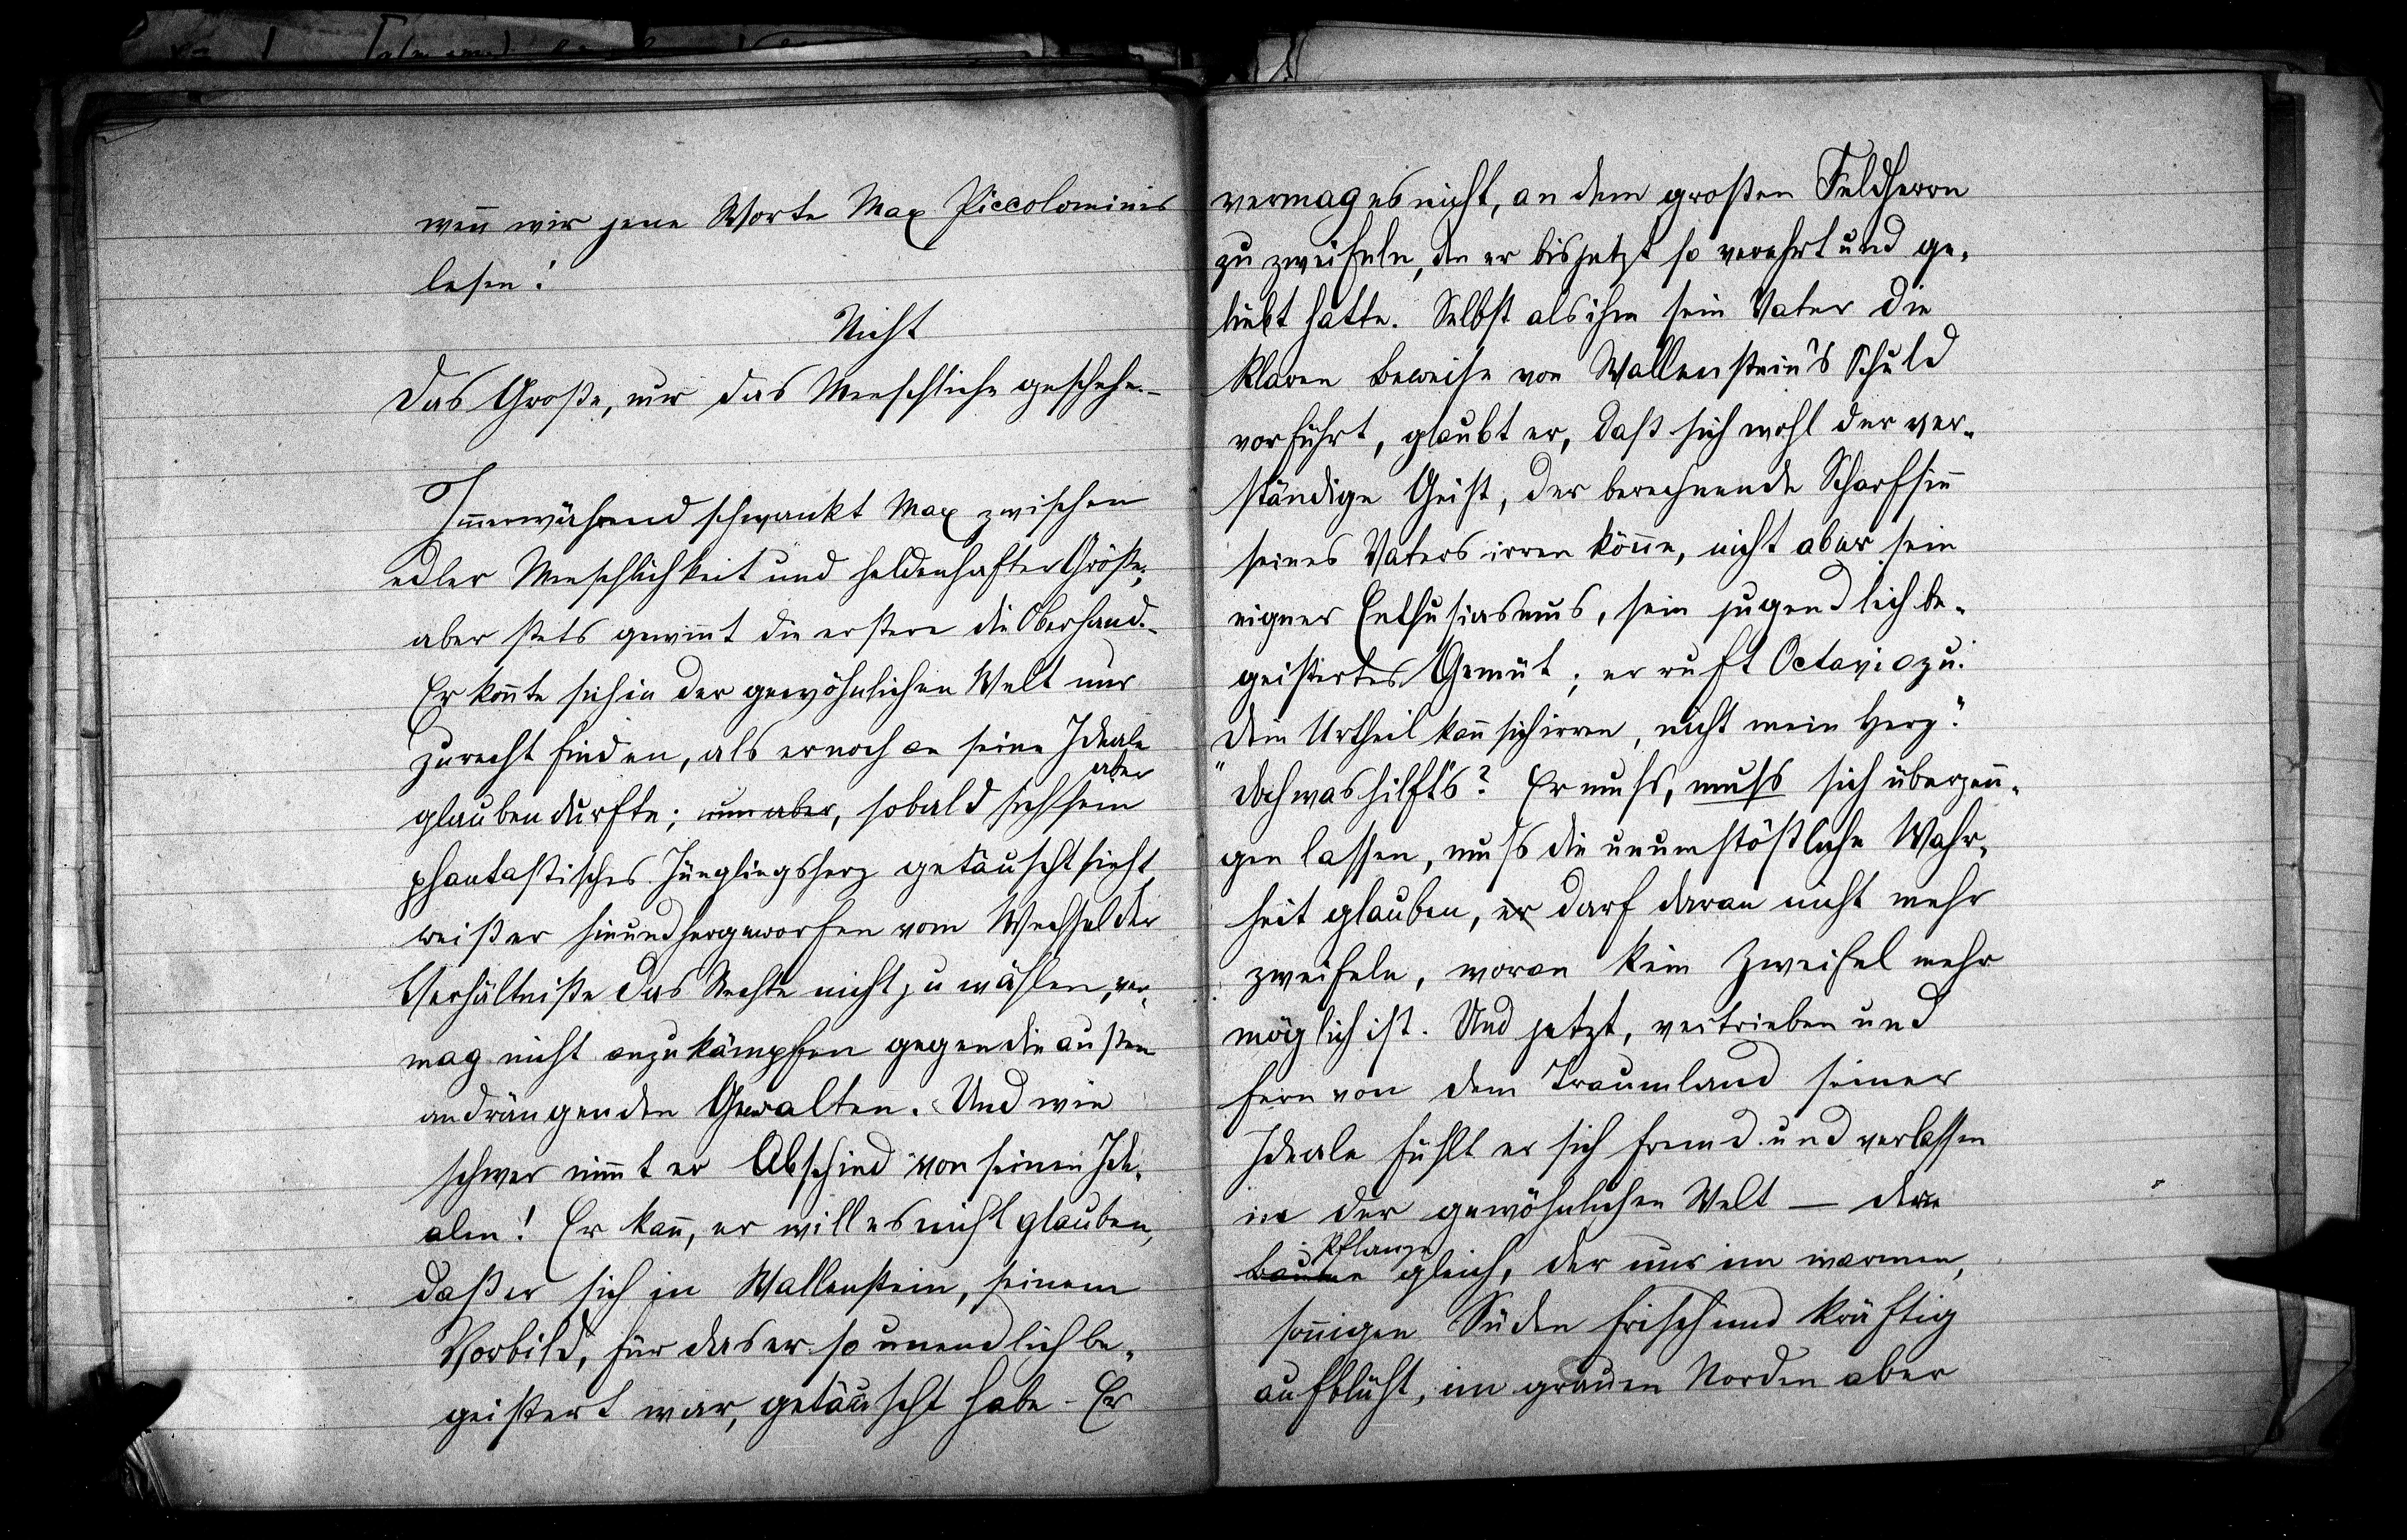 weñ wir jene Worte Max Piccolominis
lesen:
Nicht
Das Große, nur das Menschliche geschehe. –
Im̃erwährend schwankt Max zwischen
edler Menschlichkeit und heldenhafter Größe;
aber stets gewiñt die erstere die Oberhand. –
Er koñte sich in der gewöhnlichen Welt nur
zurecht finden, als er noch an seine Ideale
aber
glauben durfte; nun aber, sobald sich sein
phantastisches Jünglingsherz getäuscht sieht,
weiß er hinundhergeworfen vom Wechsel der
Verhältniße das Rechte nicht zu wählen, ver-
mag nicht anzukämpfen gegen die außen
andrängenden Gewalten. Und wie
schwer nim̃t er Abschied von seinen Ide-
alen! Er kañ, er will es nicht glauben,
daß er sich in Wallenstein, seinem
Vorbild, für das er so unendlich be-
geistert war, getäuscht habe – Er
vermag es nicht, an dem großen Feldherrn
zu zweifeln, den er bis jetzt so verehrt und ge-
liebt hatte. Selbst als ihm sein Vater die
klaren Beweise von Wallenstein's Schuld
vorführt, glaubt er, daß sich wohl der ver-
ständige Geist, der berechnende Scharfsiñ
seines Vaters irren köñe, nicht aber sein
eigner Enthusiasmus, sein jugendlich be-
geistertes Gemüt; er ruft Octavio zu:
"Dein Urtheil kañ sich irren, nicht mein Herz."
Doch was hilft's? Er muß, muß sich überzeu-
gen lassen, muß die unumstößliche Wahr-
heit glauben, er darf daran nicht mehr
zweifeln, woran kein Zweifel mehr
möglich ist. Und jetzt, vertrieben und
fern von dem Traumland seiner
Ideale fühlt er sich fremd und verlassen
in der gewöhnlichen Welt – der
Pflanze
Baume gleich, der nur im warmen,
soñigen Süden frisch und kräftig
aufblüht, im grauen Norden aber